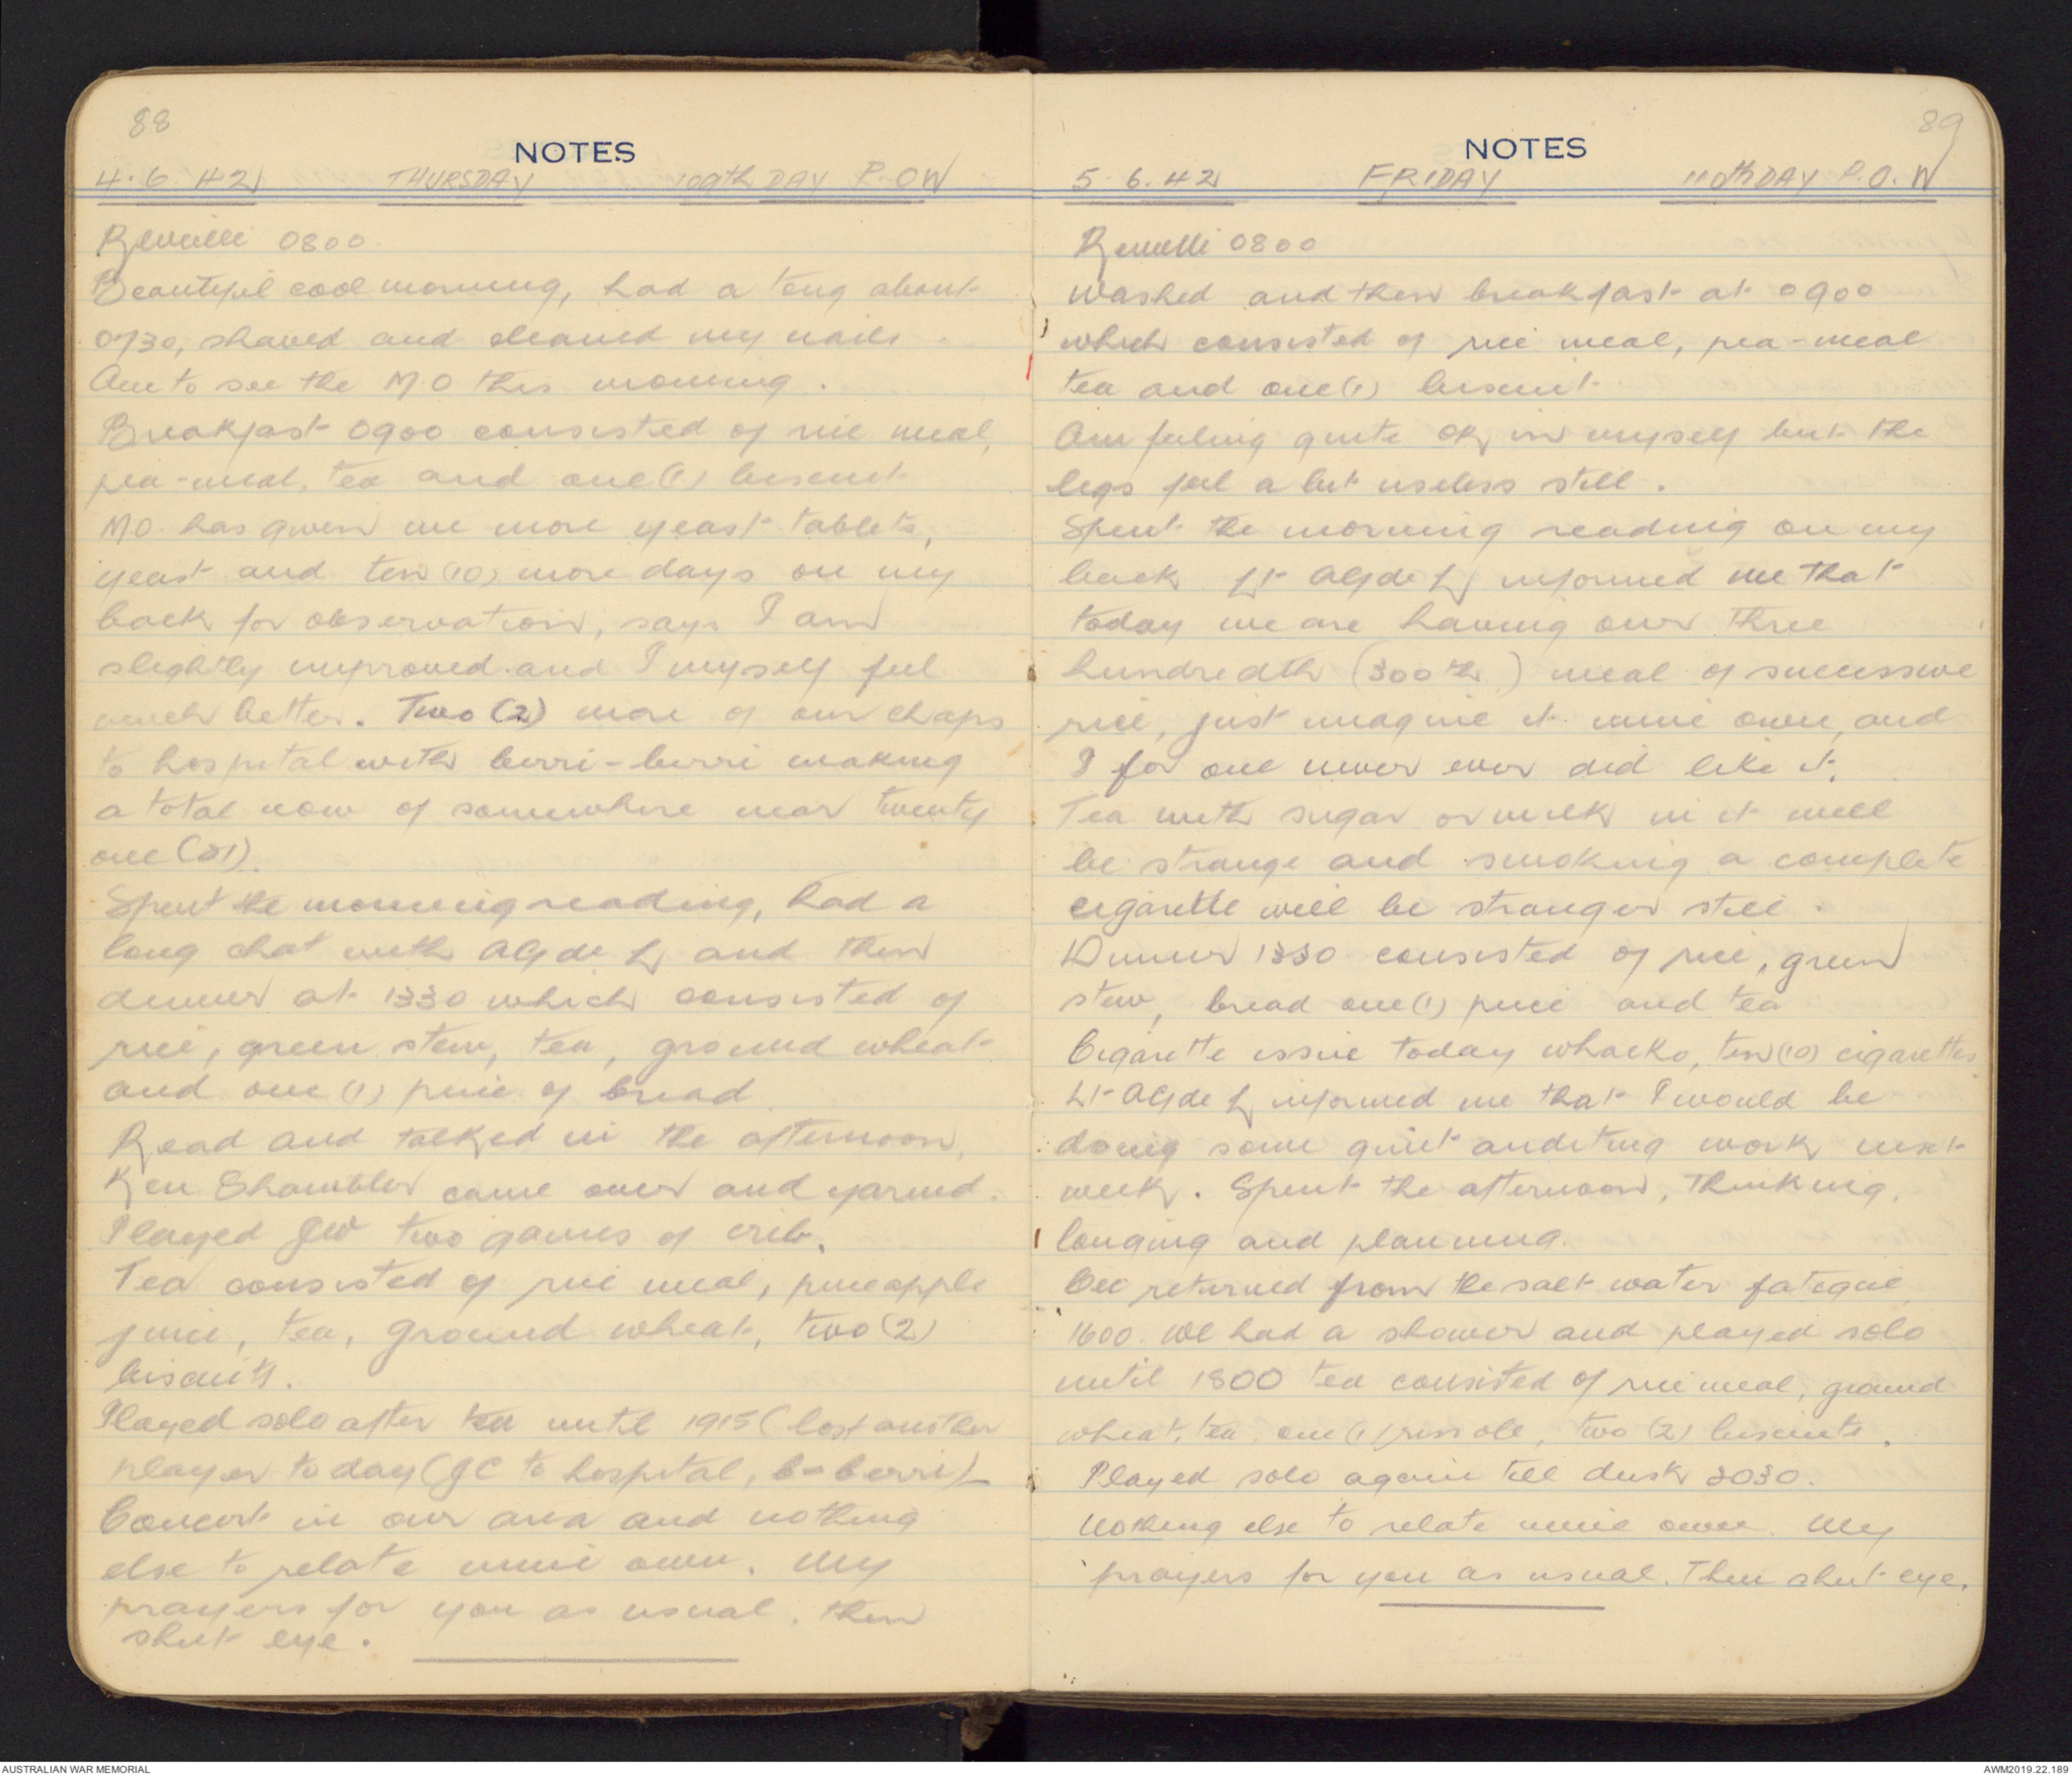 88
NOTES
4.6.42 THURSDAY 109th DAY P.OW
Reveilli 0800.
Beautiful cool morning, had a tong about
0730, shaved and cleaned my nails.
Am to see the M.O this morning.
Breakfast 0900 consisted of rice meal,
pea-meal, tea and one (1) biscuit
M.O. has given me more yeast tablets,
yeast and ten (10) more days on my
back for observation, says I am
slightly improved and I myself feel
much better. Two (2) more of our chaps
to hospital with berri-berri making
a total now of somewhere near twenty
one (21).
Spent the morning reading, had a
long chat with AG de L and then
dinner at 1330 which consisted of
rice, green stew, tea, ground wheat
and one (1) piece of bread
Read and talked in the afternoon,
Ken Shambler came over and yarned.
Played JW two games of crib.
Tea consisted of rice meal, pineapple
juice, tea, ground wheat, two (2)
biscuits.
Played solo after tea until 1915 (lost another
player today (JC to hospital, b-berri)
Concert in our area and nothing
else to relate mine own. My
prayers for you as usual. then
shut eye.
89
NOTES
5.6.42 FRIDAY 110th DAY P.O.W
Reveilli 0800
Washed and then breakfast at 0900
which consisted of rice meal, pea-meal
tea and one (1) biscuit.
Am feeling quite OK in myself but the
legs feel a bit useless still.
Spent the morning reading on my
back Lt AG de L informed me that
today we are having our three
hundredth (300th) meal of successive
rice, just imagine it mine own, and
I for one never ever did like it.
Tea with sugar or milk in it will
be strange and smoking a complete
cigarette will be stranger still.
Dinner 1330 consisted of rice, green
stew, bread one (1) piece and tea
Cigarette issue today whacko, ten (10) cigarettes.
Lt AG de L informed me that I would be
doing some quiet auditing work next
week. Spent the afternoon, thinking,
longing and planning.
Cec returned from the salt water fatigue
1600. We had a shower and played solo
until 1800 tea consisted of rice meal, ground
wheat, tea, one (1) rissole, two (2) biscuits.
Played solo again till dusk 2030.
Nothing else to relate mine own. My
prayers for you as usual. Then shut eye.
AUSTRALIAN WAR MEMORIAL
AWM2019.22.189